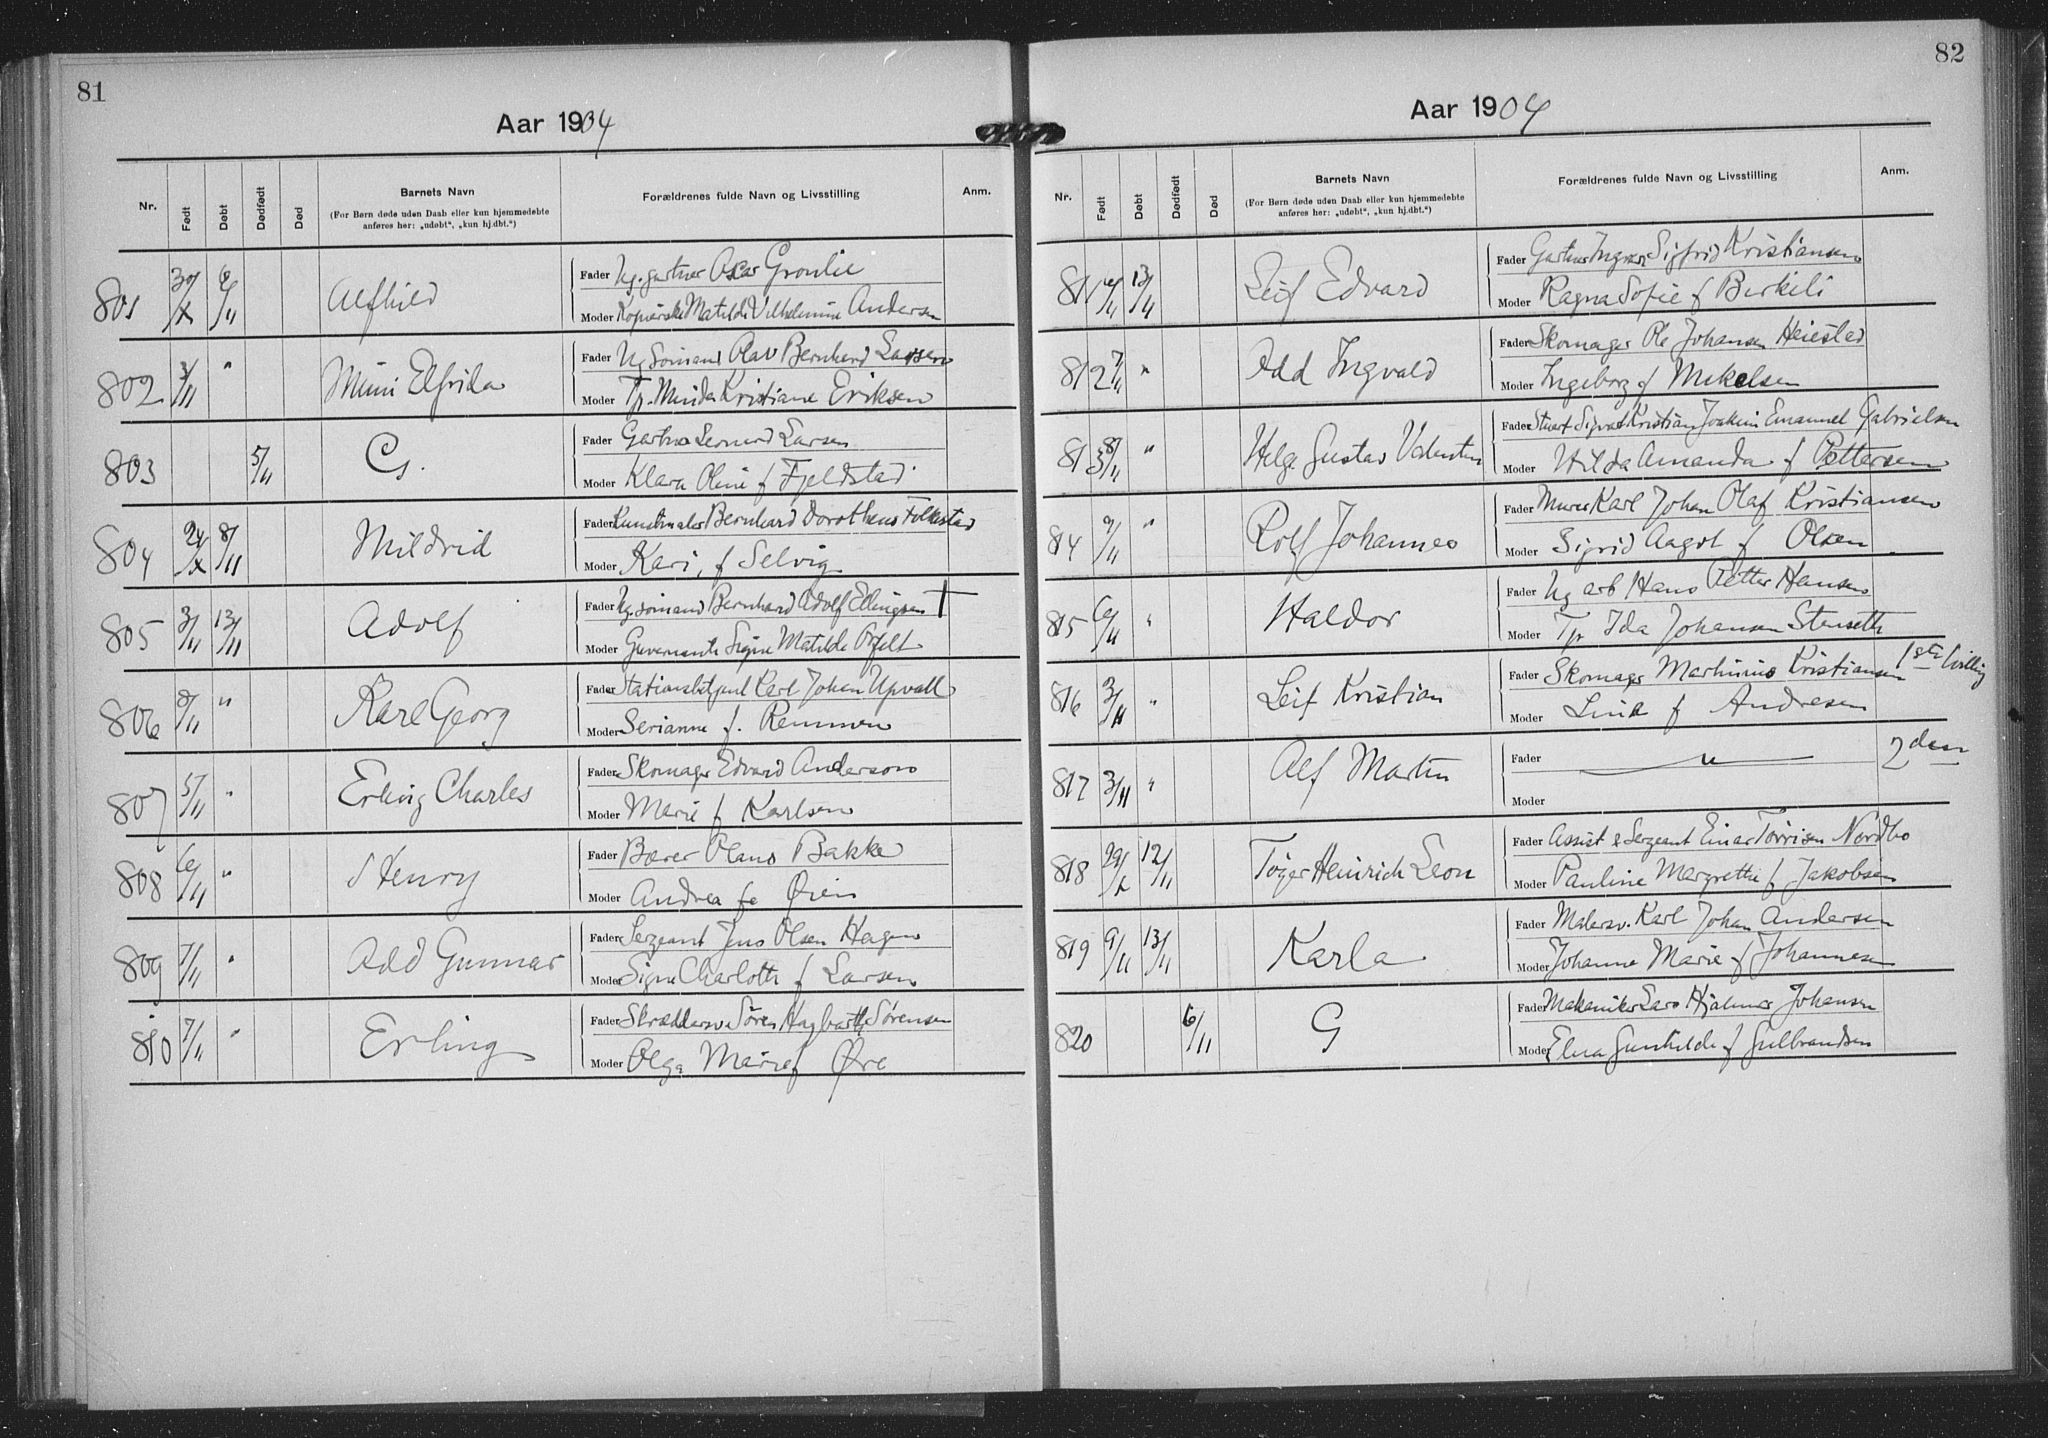 81
Aar 1904
Nr. Født Døbt Dødfødt Død Barnets Navn Forældrenes fulde Navn og Livsstilling Anm.
(For Børn døde uden Daab eller kun hjemmedøbte
anføres her: „udøbt“, „kun hj.dbt.“)
801 30/X 6/11 Alfhild Fader Ug. gartner Oskar Gronlie
Moder Matilde Vilhelmine Andersen
802 3/11 " Mimi Elfrida Fader Ug Sømand Olav Bernhard Larsen
Moder Tp. Minda Kristiane Eriksen
803 5/11 G. Fader Gartner Lenard Larsen
Moder Klara Oline f Fjeldstad
804 24/X 8/11 Mildrid Fader Kunstmaler Bernhard Dorotheus Folkestad
Moder Kari, f Selvig
805 3/11 13/11 Adolf Fader Ug. sømand Bernhard Adolf Ellingsen †
Moder Guvernante Signe Matilde Orfelt
806 8/11 " Karl Georg Fader Stationsbetjent Karl Johan Upvall
Moder Serianne f. Remmen
807 5/11 " Erling Charles Fader Skomager Edvard Anderson
Moder Marie f Karlsen
808 6/11 " Henry Fader Bærer Olaus Bakke
Moder Andrea f Øien
809 7/11 " Odd Gunnar Fader Sergeant Jens Olsen Hagen
Moder Signe Charlotte f Larsen
810 7/11 " Erling Fader Skræddersv. Søren Hagbarth Sørensen
Moder Olga Marie f Øre
82
Aar 1904
Nr. Født Døbt Dødfødt Død Barnets Navn Forældrenes fulde Navn og Livsstilling Anm.
(For Børn døde uden Daab eller kun hjemmedøbte
anføres her: „udøbt“, „kun hj.dbt.“)
811 6/11 13/11 Leif Edvard Fader Gartner Ingvar Sigfrid Kristiansen
Moder Ragna Sofie f Birkeli
812 7/11 " Odd Ingvald Fader Skomager Ole Johansen Heiestad
Moder Ingeborg f Mikelsen
813 8/11 " Helge Gustav Valentin Fader Stuert Sigvat Kristian Joakim Emanuel Gabrielsen
Moder Hilda Amanda f Pettersen
814 9/11 " Rolf Johannes Fader Murer Karl Johan Olaf Kristiansen
Moder Sigrid Aagot f Olsen
815 6/11 " Haldor Fader Ug arb Hans Petter Hansen
Moder Tp Ida Johansen Stenseth
816 3/11 " Leif Kristian Fader Skomager Martinius Kristiansen 1ste tvilling
Moder Lina f Andresen
817 3/11 " Alf Martin Fader — " — 2den
Moder
818 29/X 12/11 Tøger Heinrich Leon Fader Assist & Sergeant Einar Tørrisen Nordbo
Moder Pauline Margrethe f Jakobsen
819 9/11 13/11 Karla Fader Malersv. Karl Johan Andersen
Moder Johanne Marie f Johannesen
820 6/11 G Fader Mekaniker Lars Hjalmar Johansen
Moder Elna Gunhilde f Gulbrandsen